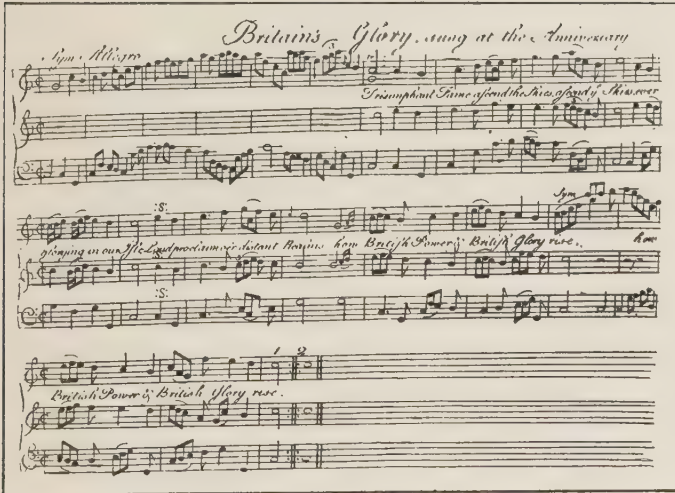 Britains Glory. sung at the Anniversary
Sym. Allegro
Triumphant Fame ascend the Skies, ascend yͤ Skies, ever
:S:
Sym
glorying in our Isle Loud proclaim o'er distant how British Power & British Glory rise. how
:S:
:S:
1 2
British Power & British Glory rise.